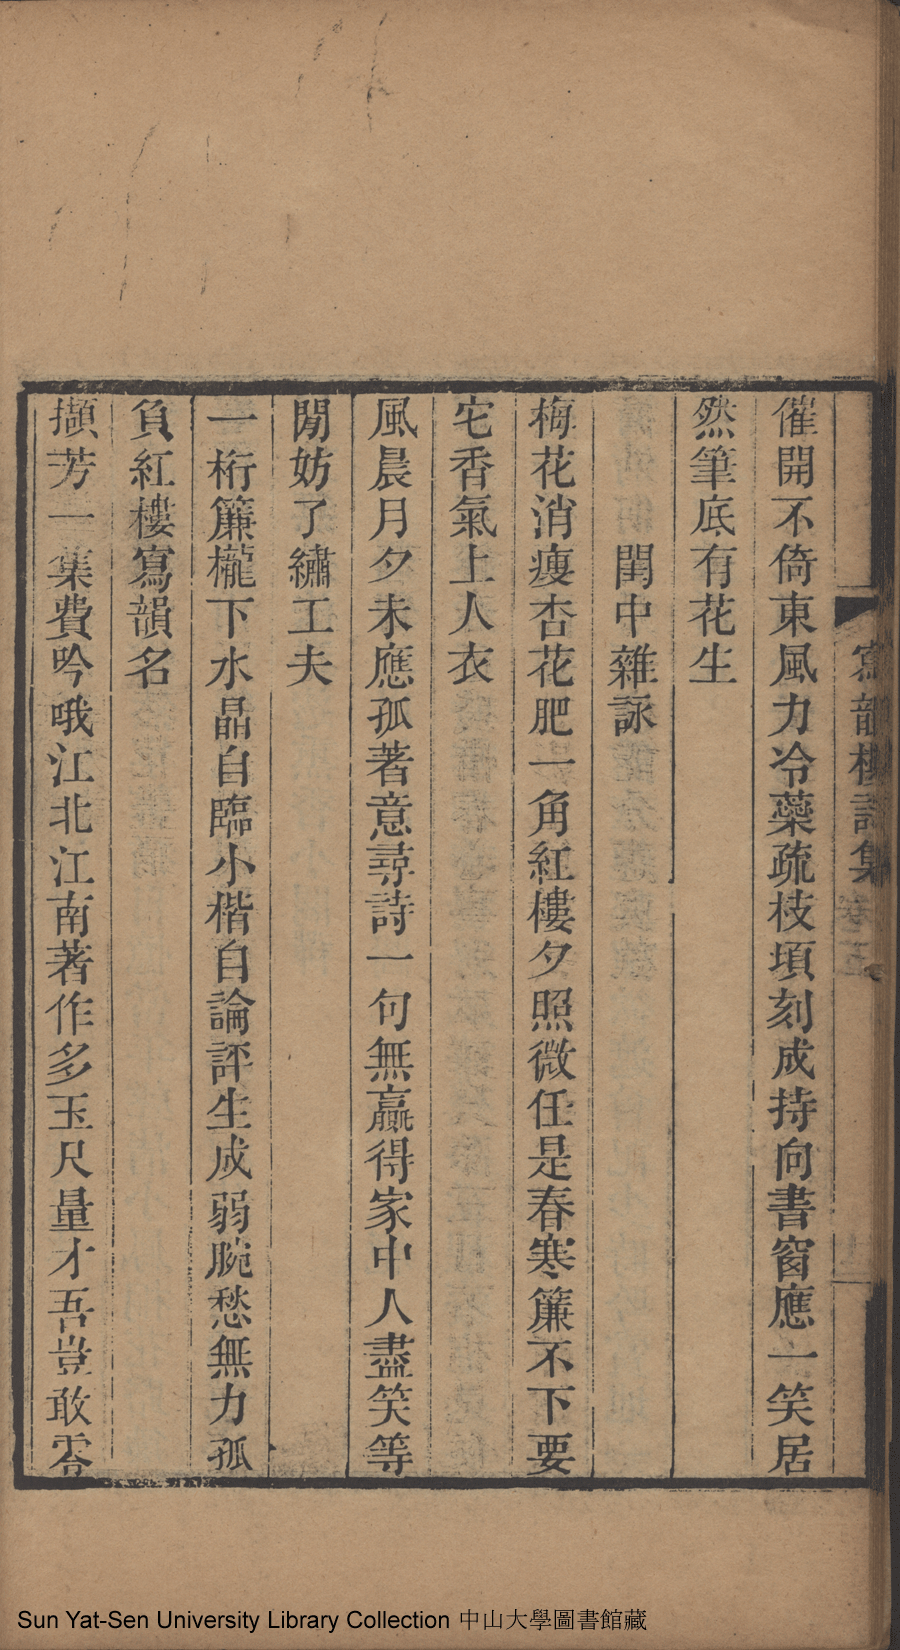 寫韻樓詩集 卷五
催開不倚東風力冷藥疏枝頃刻成持向書窗應一笑居
然筆底有花生
閨中雜詠
梅花消瘦杏花肥一角紅樓夕照微任是春寒簾不下要
它香氣上人衣
風晨月夕未應孤著意尋詩一句無贏得家中人盡笑等
閒妨了繡工夫
一桁簾櫳下水晶自臨小楷自論評生成弱腕愁無力孤
負紅樓寫韻名
擷芳一集費吟哦江北江南著作多玉尺量才吾豈敢零
Sun Yat-Sen University Library Collection 中山大學圖書館藏